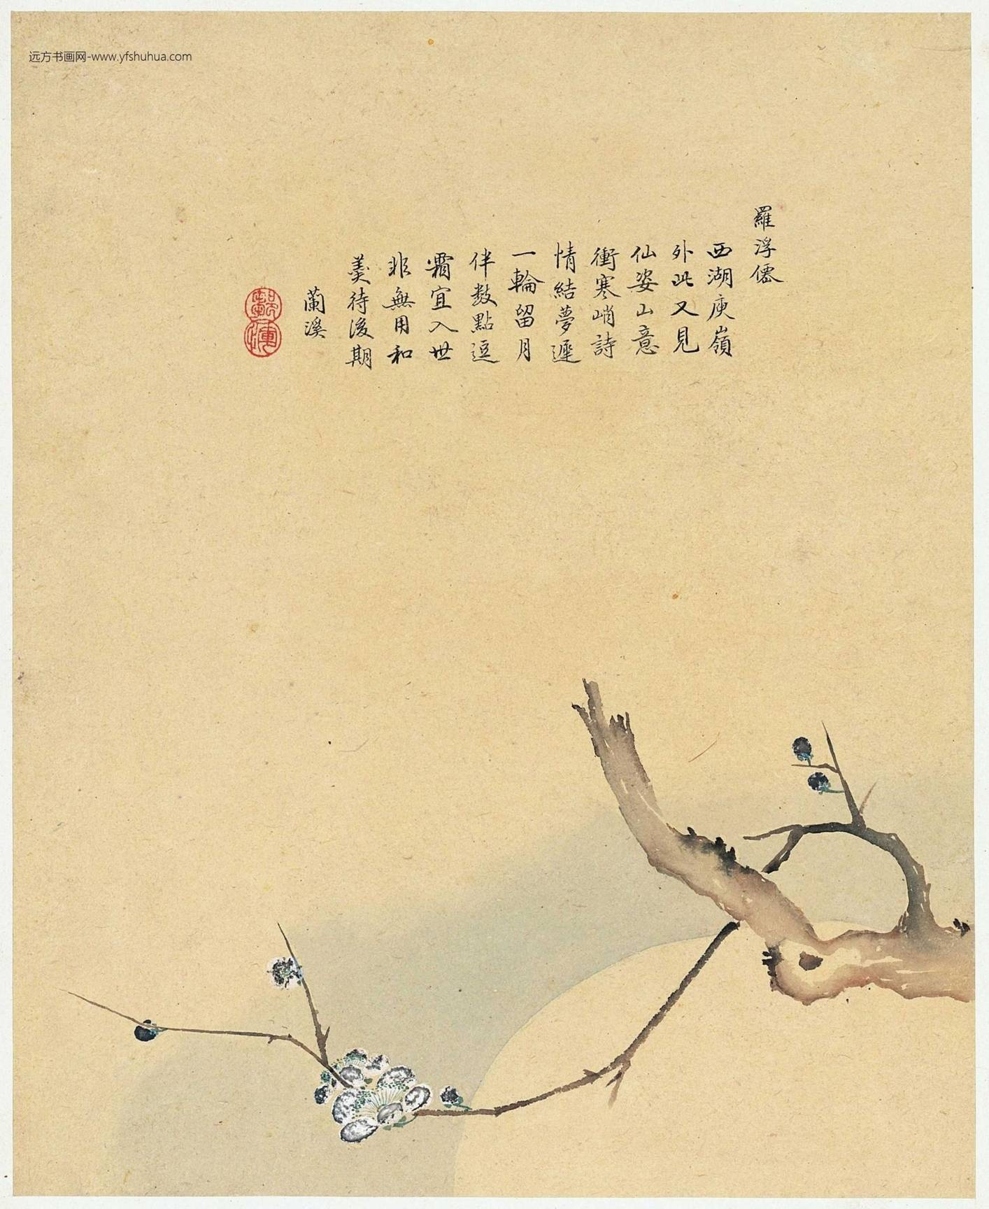 远方书画网-www.yfshuhua.com
羅浮僊
西湖庾嶺
外此又見
仙姿山意
衝寒峭詩
情結夢遲
一輪留月
伴数點逗
霜宜入世
非無用和
羹待後期
蘭溪